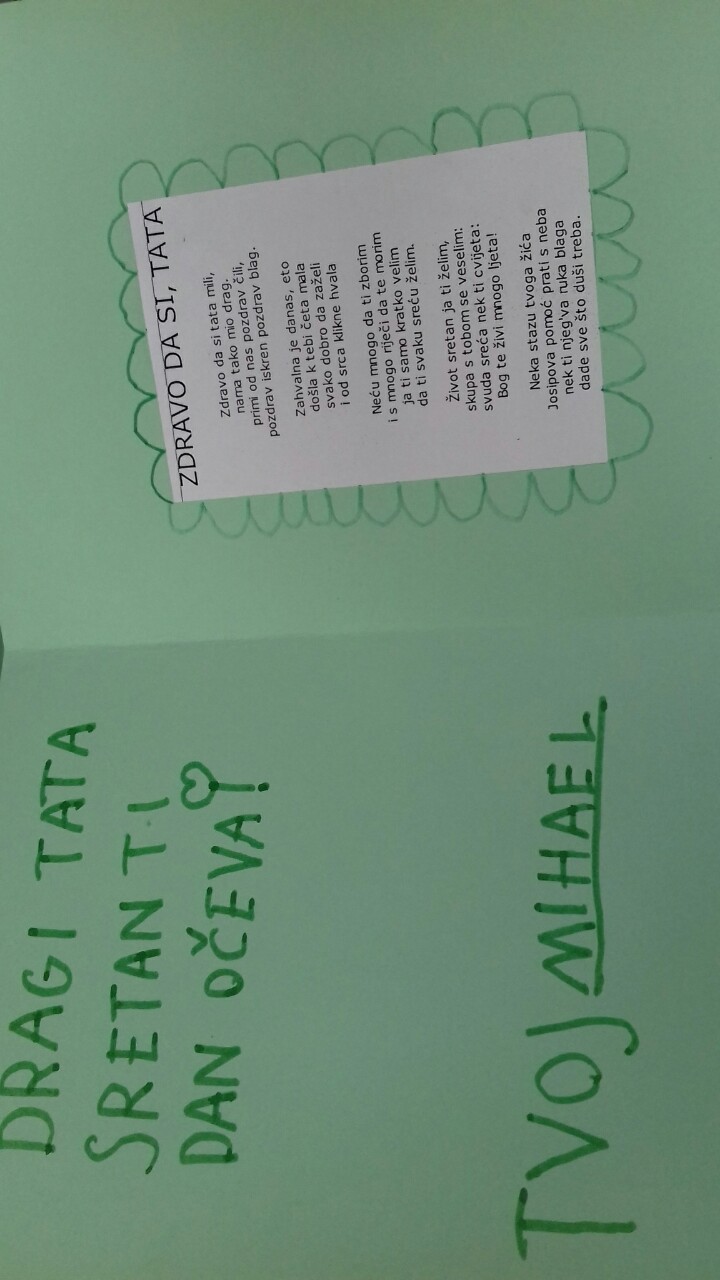 DRAGI TATA
SRETAN TI
DAN OČEVA!
TVOJ MIHAEL
ZDRAVO DA SI, TATA
Zdravo da si tata mili,
nama tako mio drag.
primi od nas pozdrav čili,
pozdrav iskren pozdrav blag.
Zahvalna je danas, eto
došla k tebi četa mala
svako dobro da zaželi
i od srca klikne hvala
Neću mnogo da ti zborim
i s mnogo riječi da te morim
ja ti samo kratko velim
da ti svaku sreću želim.
Život sretan ja ti želim,
skupa s tobom se veselim:
svuda sreća nek ti cvijeta:
Bog te živi mnogo ljeta!
Neka stazu tvoga žića
Josipova pomoć prati s neba
nek ti njeg'va ruka blaga
dade sve što duši treba.